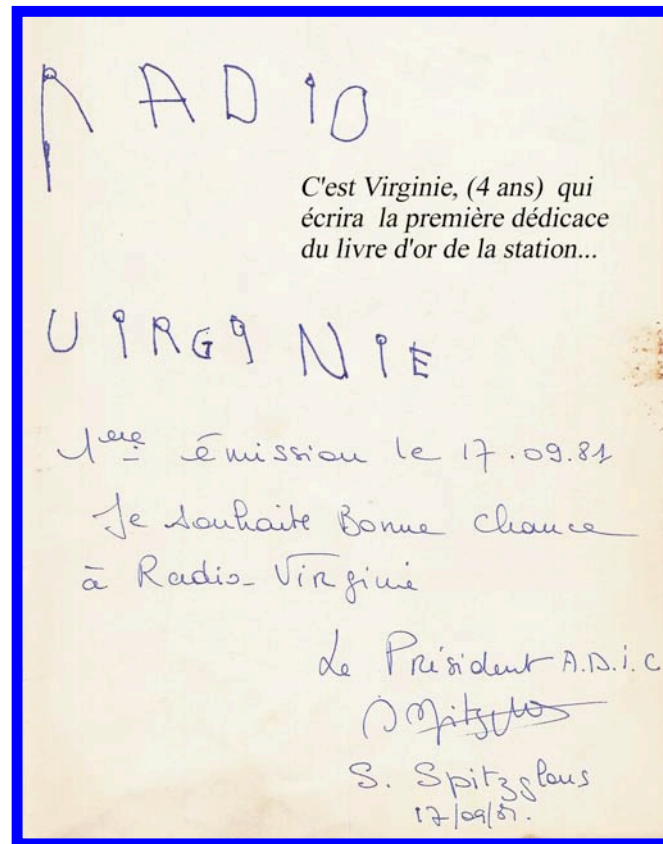 RADIO
C'est Virginie, (4 ans) qui
écrira la première dédicace
du livre d'or de la station...
VIRGINIE
1ère émission le 17.09.81
Je souhaite Bonne chance
à Radio-Virginie
Le Président A.D.i.C
S. Spitzglous
17/09/81.